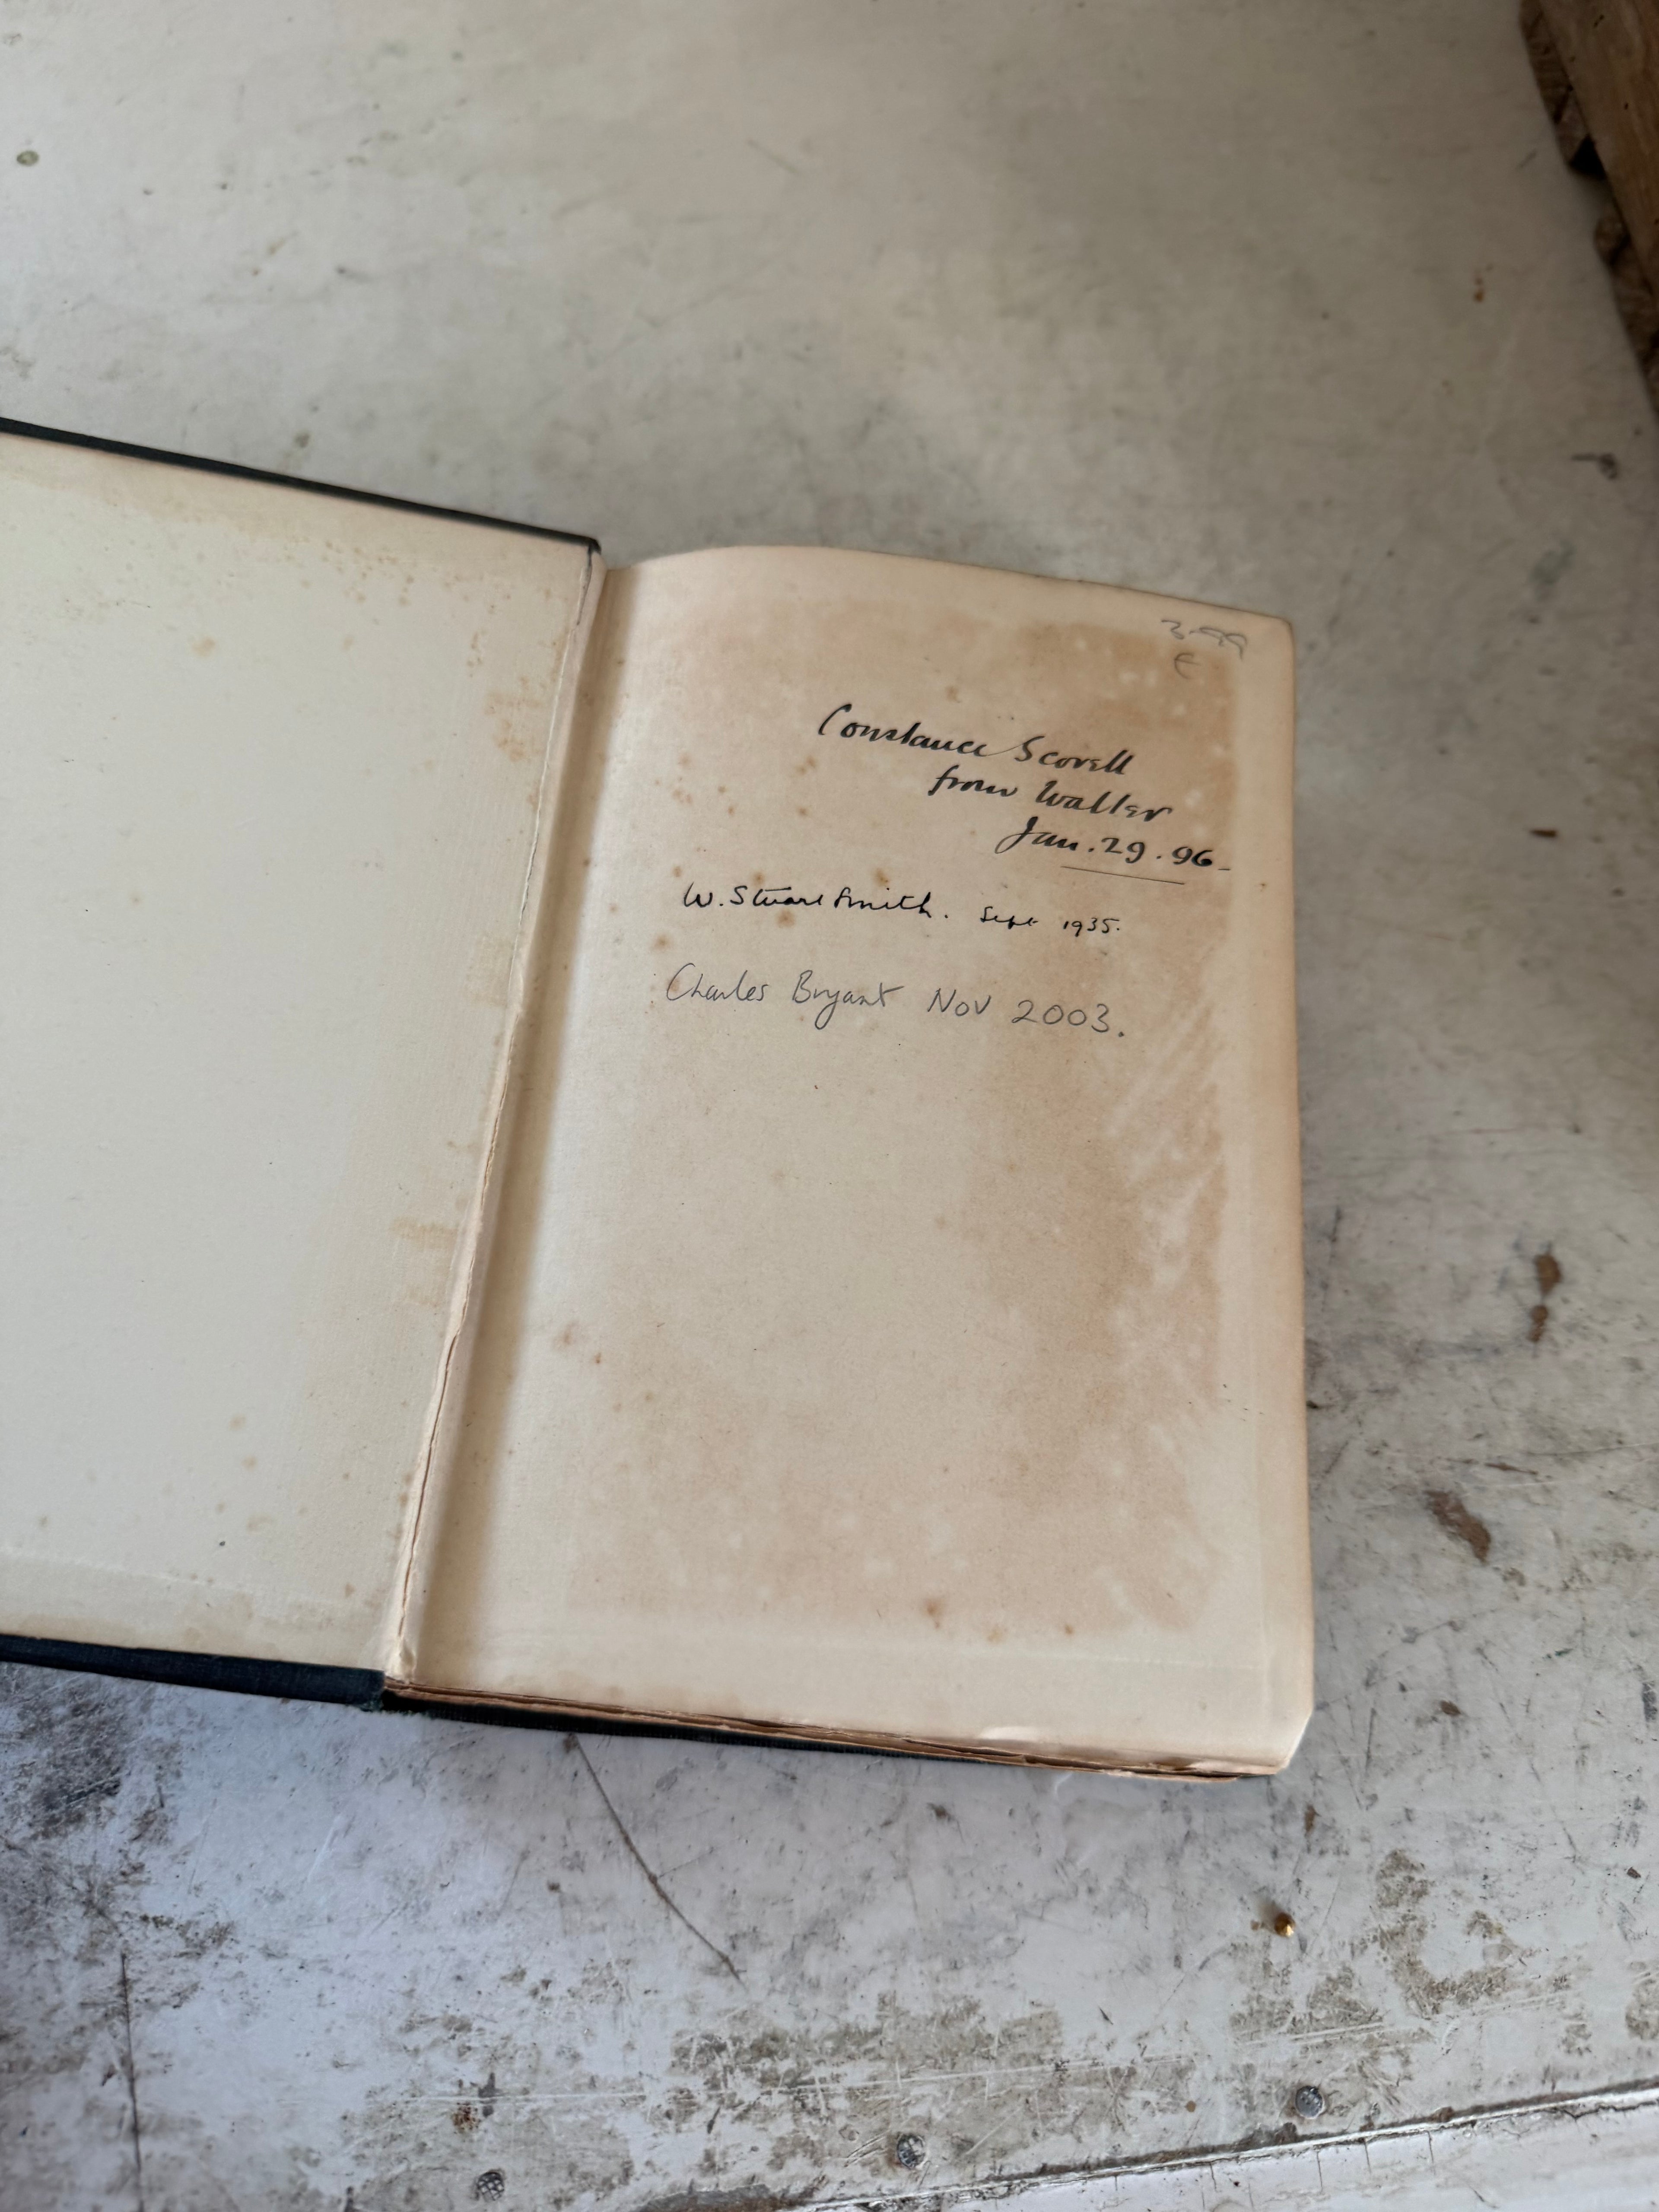 3.99
E
Constance Scovell
from Walter
Jan. 29. 96.
W. Stuart Smith. Sept 1935.
Charles Bryant Nov 2003.